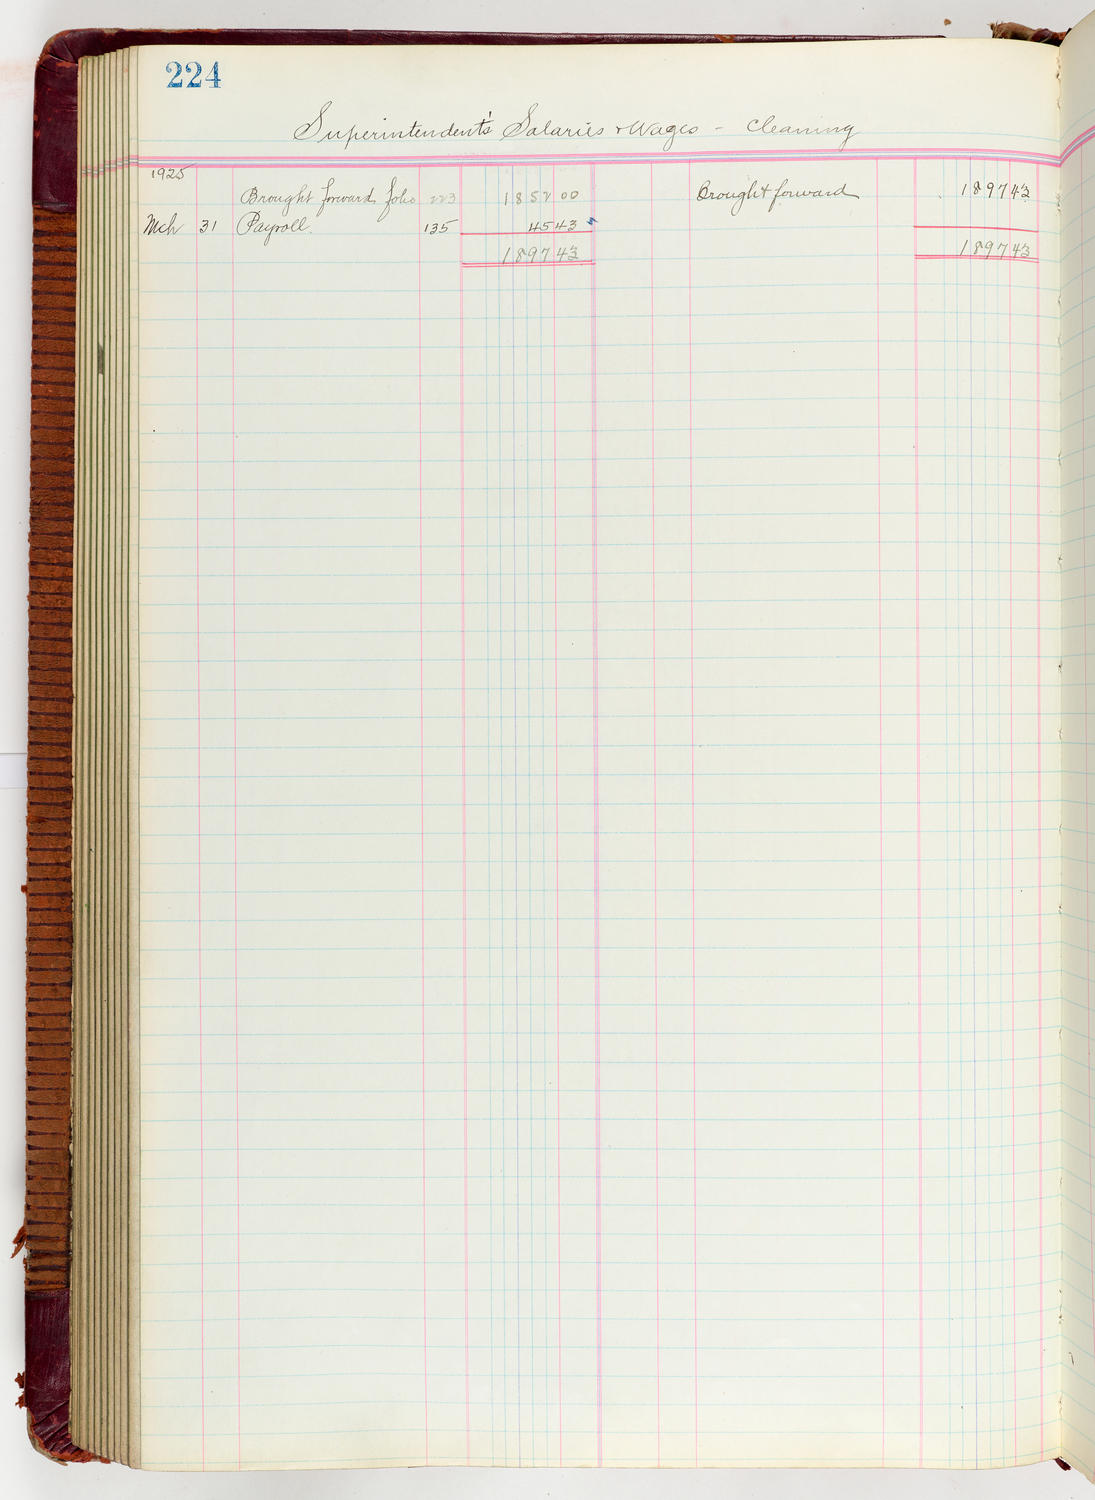 224
Superintendent's Salaries & Wages - Cleaning
1925
Brought forward folio 223 1852 00 Brought forward 1897 43
Mch 31 Payroll. 135 45 43
1897 43 1897 43